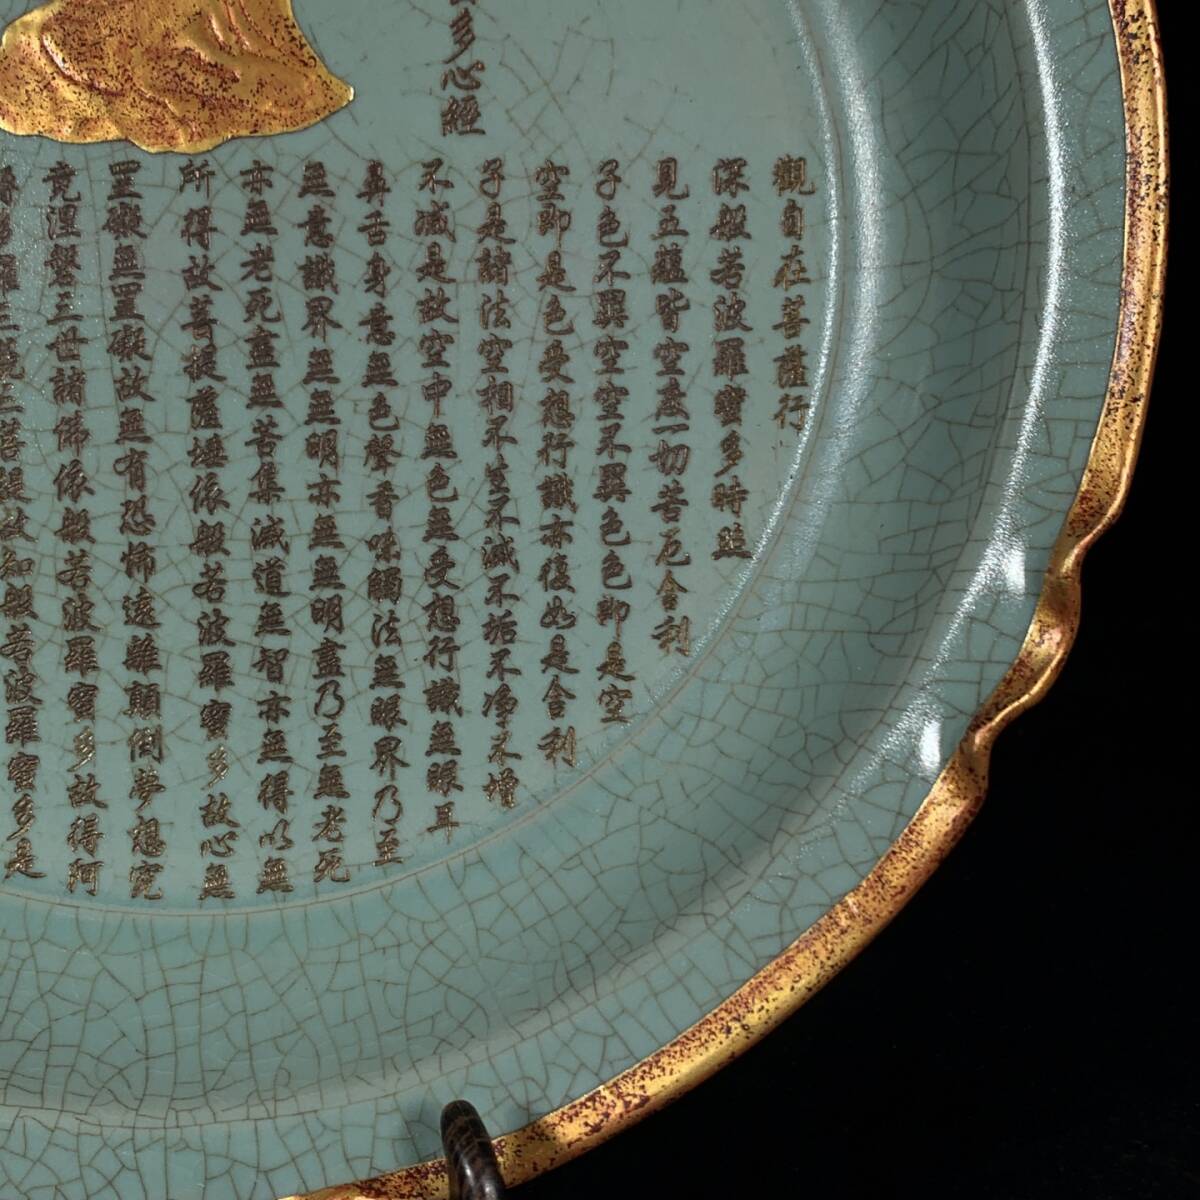 多心經
觀自在菩薩行
深般若波羅蜜多時照
見五蘊皆空度一切苦厄舍利
子色不異空空不異色色即是空
空即是色受想行識亦復如是舍利
子是諸法空相不生不滅不垢不淨不增
不減是故空中無色無受想行識無眼耳
鼻舌身意無色聲香味觸法無眼界乃至
無意識界無無明亦無無明盡乃至無老死
亦無老死盡無苦集滅道無智亦無得以無
所得故菩提薩埵依般若波羅蜜多故心無
罣礙無罣礙故無有恐怖遠離顛倒夢想究
竟涅槃三世諸佛依般若波羅蜜多故得阿
羅三藐三菩提故知般若波羅蜜多是